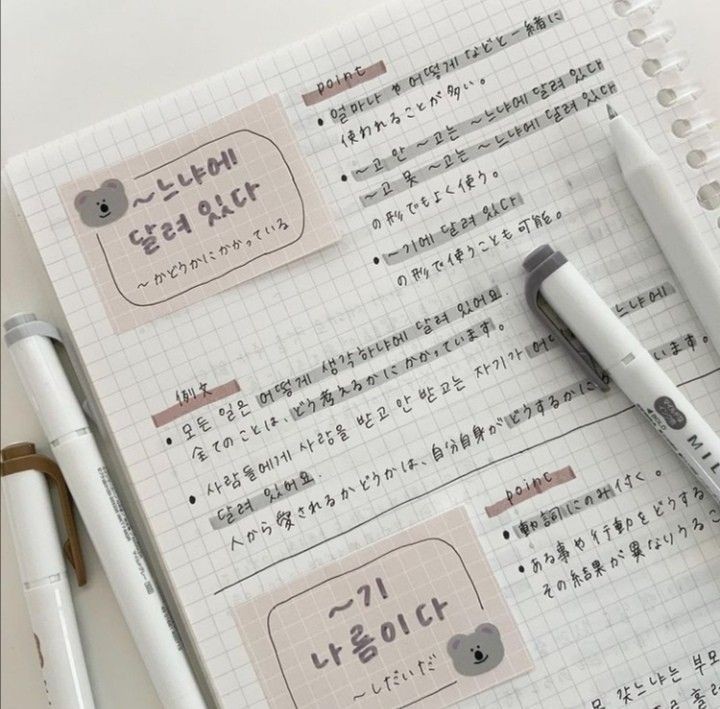 point
• 얼마나 や 어떻게 などと一緒に
使われることが多い。
• ~고 안 ~고는 ~느냐에 달려 있다
~고 못 ~고는 ~느냐에 달려 있다
の形でもよく使う。
• ~기에 달려 있다
の形で使うことも可能。
~느냐에
달려 있다
~かどうかにかかっている
例文
• 모든 일은 어떻게 생각하냐에 달려 있어요.
全てのことは、どう考えるかにかかっています。
• 사람들에게 사랑을 받고 안 받고는 자기가 느냐에
달려 있어요.
人から愛されるかどうかは、自分自身がどうするかに います。
point
• 動詞にのみ付く。
• ある事や行動をどうする
その結果が異なりうるこ
~기
나름이다
~しだいだ
MIL
갖느냐는 부모